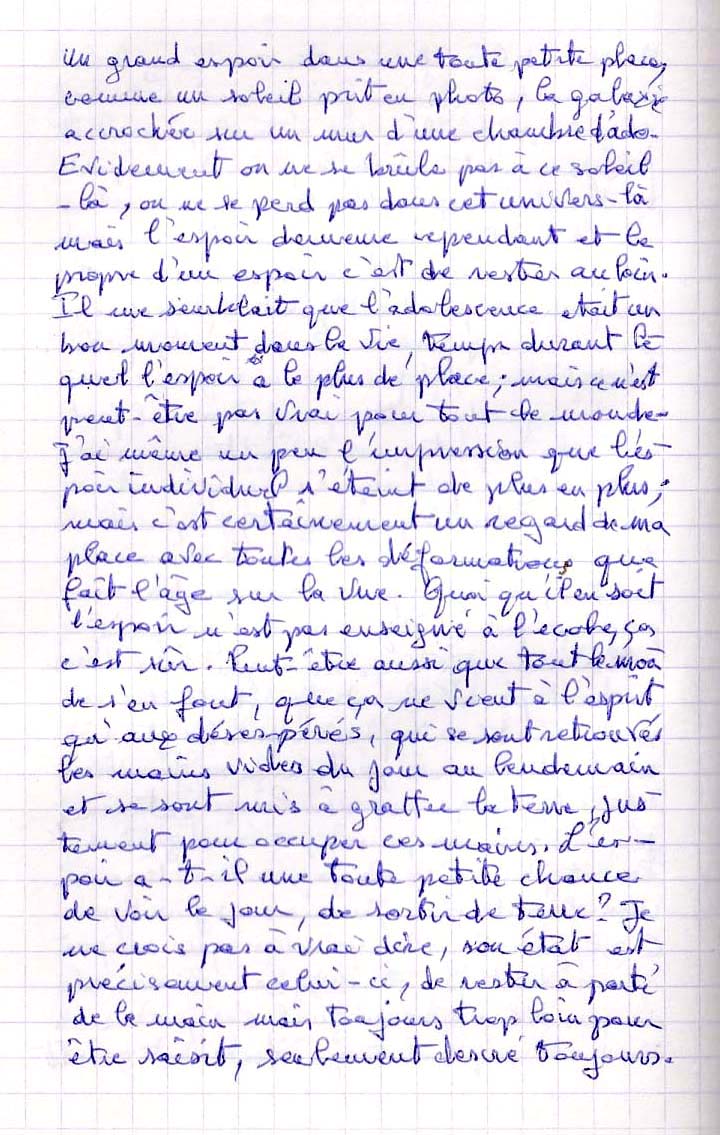 Un grand espoir dans une toute petite place,
comme un soleil prit en photo, la galaxie
accrochée sur un mur d'une chambre d'ado.
Evidement on ne se brûle pas à ce soleil
-là, on ne se perd pas dans cet univers-là
mais l'espoir demeure cependant et le
propre d'un espoir c'est de rester au loin.
Il me semblait que l'adolescence était un
bon moment dans la vie, temps durant le
quel l'espoir a le plus de place; mais ce n'est
peut-être pas vrai pour tout le monde-
J'ai même un peu l'impression que l'es-
poir individuel s'éteint de plus en plus,
mais c'est certainement un regard de ma
place avec toutes les déformations que
fait l'âge sur la vue. Quoi qu'il en soit
l'espoir n'est pas enseigné à l'école, ça
c'est sûr. Peut-être aussi que tout le mon
de s'en fout, que ça ne vient à l'esprit
qu'aux désespérés, qui se sont retrouvés
les mains vides du jour au lendemain
et se sont mis à gratter la terre, jus-
tement pour occuper ces mains. L'es-
poir a-t-il une toute petite chance
de voir le jour, de sortir de terre? Je
ne crois pas à vrai dire, son état est
précisement celui-ci, de rester à porté
de la main mais toujours trop loin pour
être saisit, seulement desiré toujours.